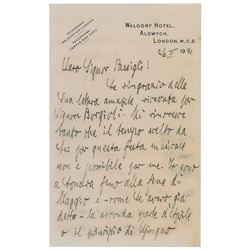 WALDORF HOTEL,
ALDWYCH,
LONDON, W.C.2.
26 V 1931
Caro Signor Passigli!
Le ringrazio della
Sua lettera amabile, ricevuta per
Signor Borgioli. Mi rincresce
tanto che il tempo scelto da
Lei per questa festa musicale
non è possibile per me. Io sono
a Londra fino alla fine di
Maggio e come Le avevo già
detto - la seconda parte d'Aprile
o il principio di Giugno